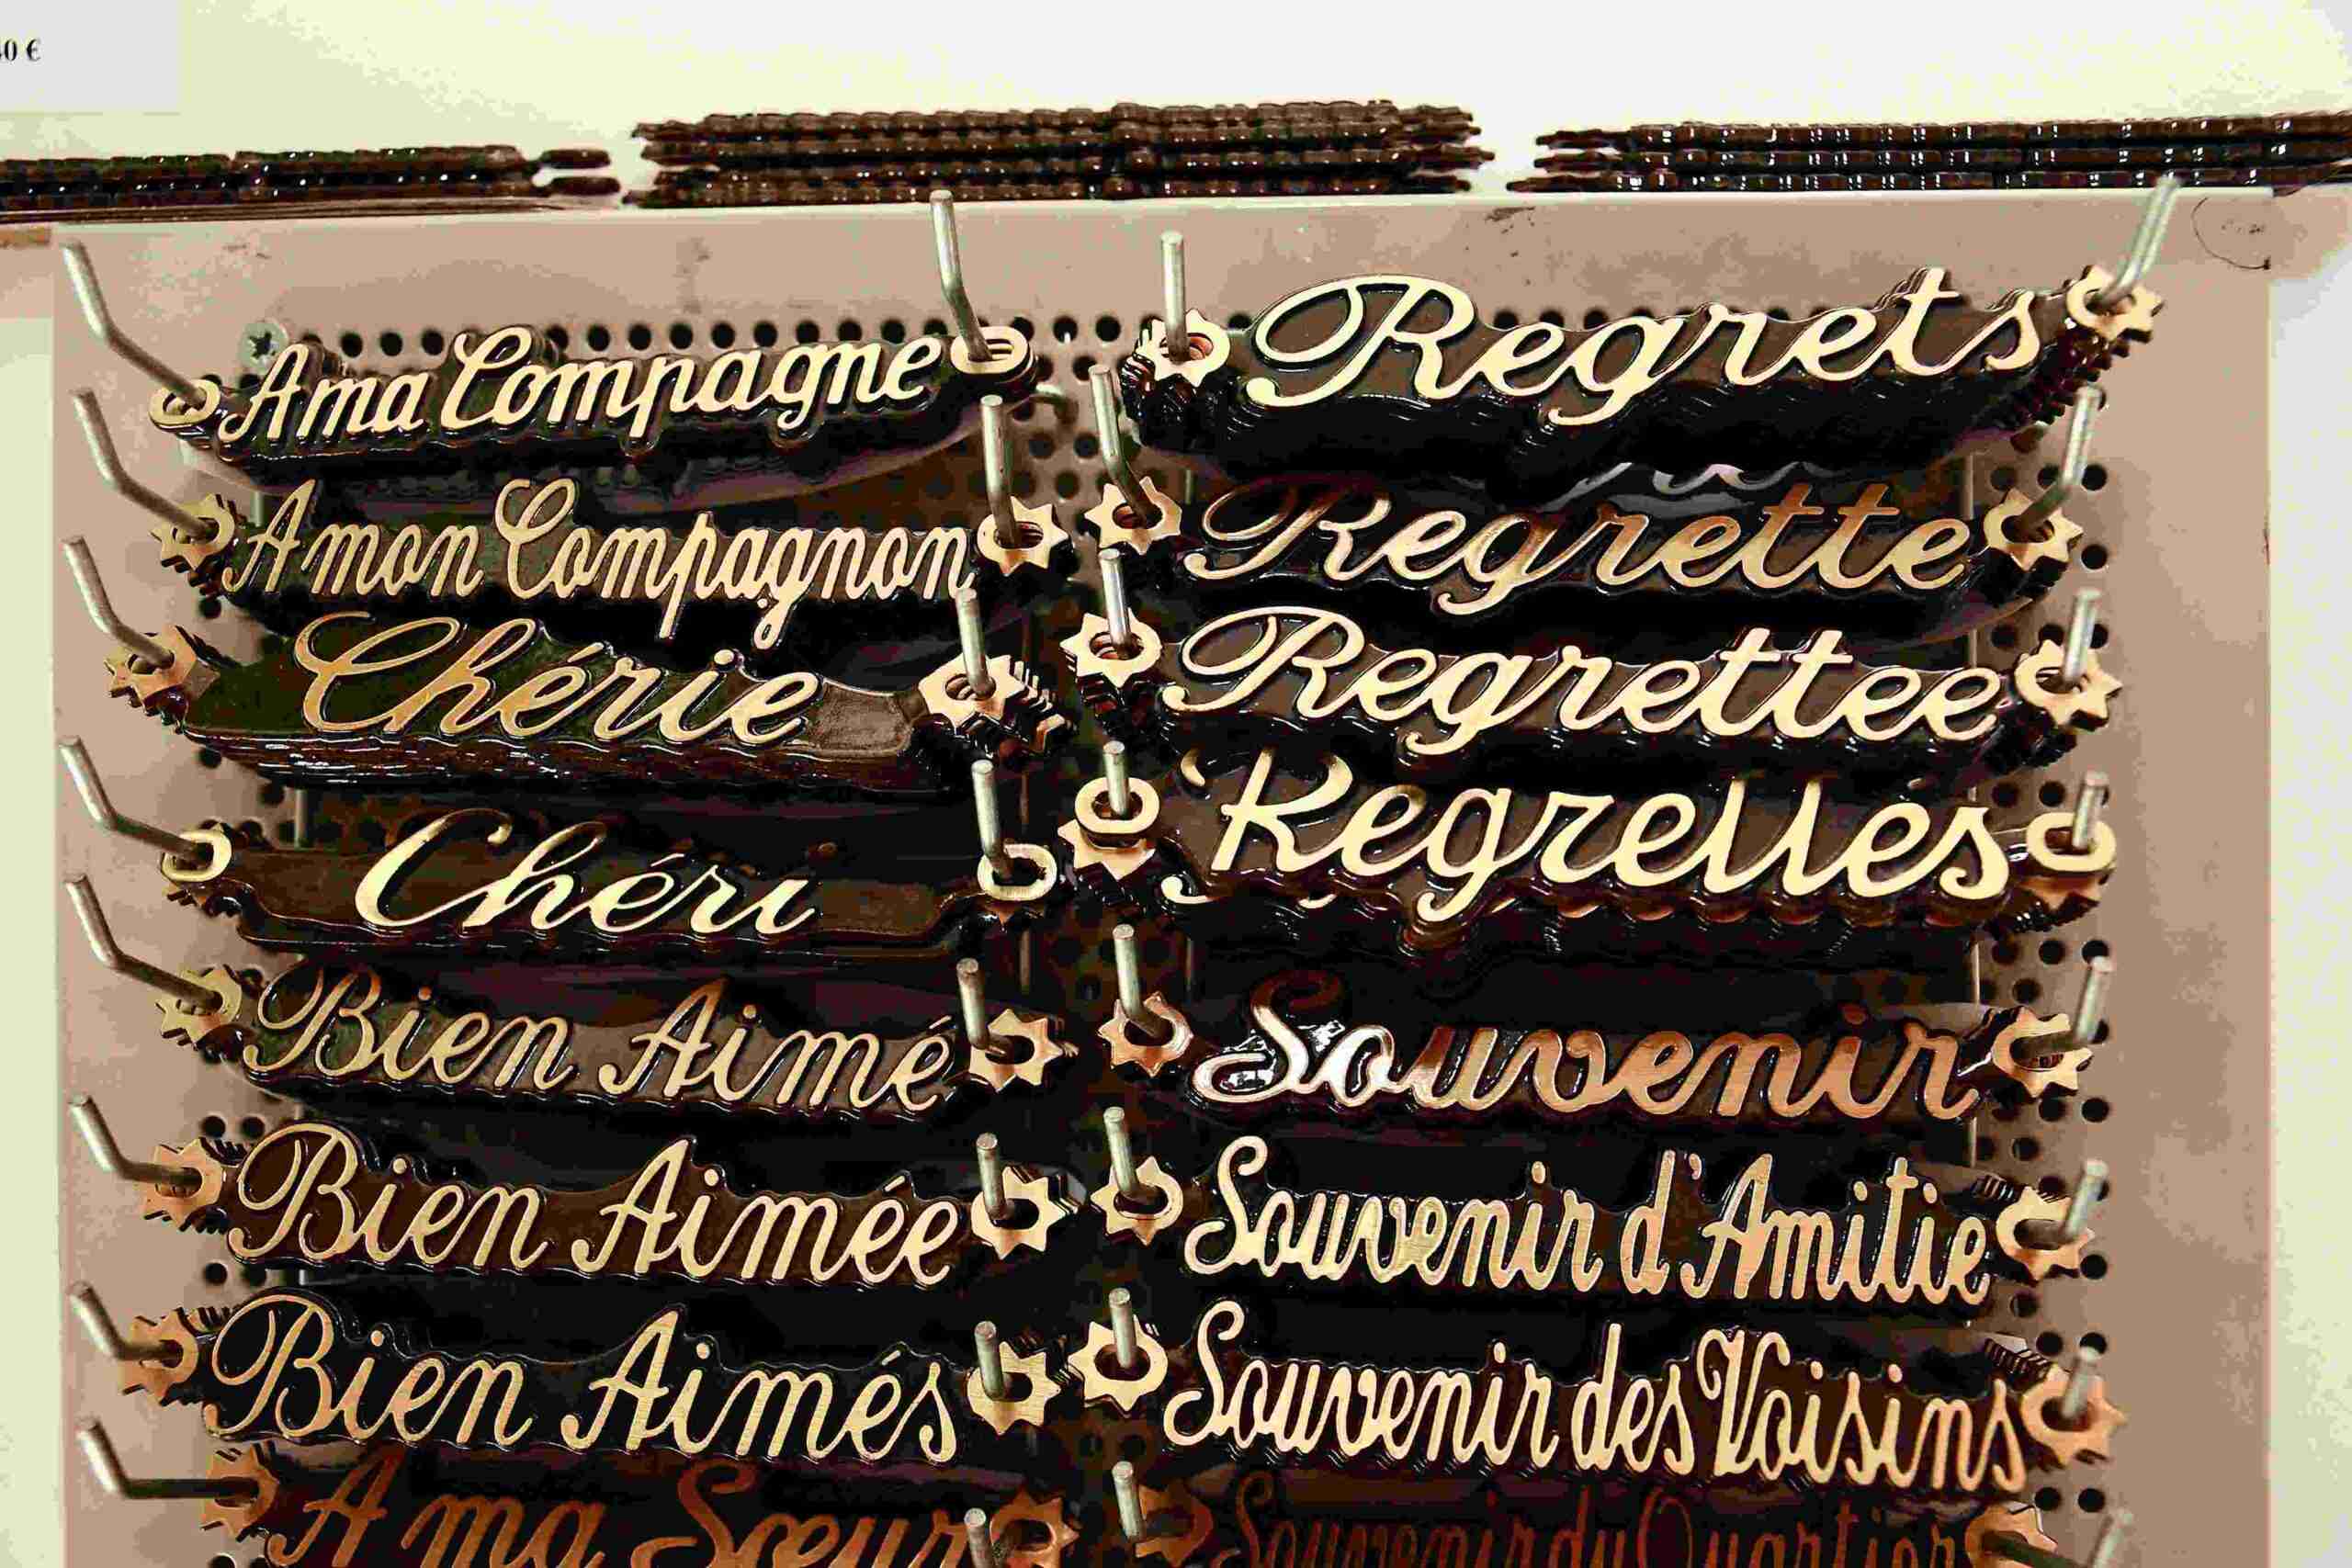 0 €
A ma Compagne
A mon Compagnon
Chérie
Chéri
Bien Aimé
Bien Aimée
Bien Aimés
A ma Sœur
Regrets
Regrette
Regrettee
Regrettes
Souvenir
Souvenir d'Amitie
Souvenir des Voisins
Souvenir du Quartier